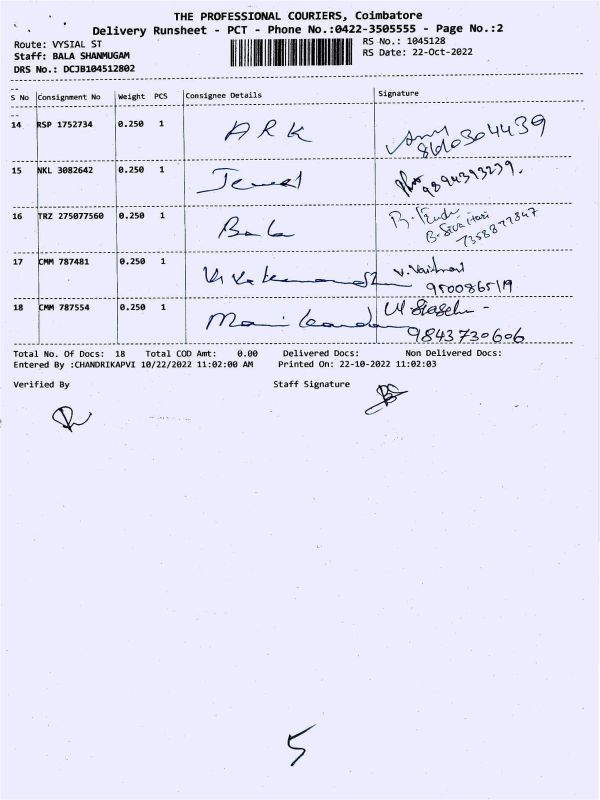 THE PROFESSIONAL COURIERS, Coimbatore
Delivery Runsheet - PCT - Phone No.:0422-3505555 - Page No.:2
Route: VYSIAL ST
RS No.: 1045128
Staff: BALA SHANMUGAM
RS Date: 22-Oct-2022
DRS No.: DCJB104512802
S No Consignment No Weight PCS Consignee Details Signature
14 RSP 1752734 0.250 1 ARK
8610304439
15 NKL 3082642 0.250 1 Jewel 9894393239.
16 TRZ 275077560 0.250 1 Bala
7358877847
17 CMM 787481 0.250 1 V. Vaishnavi
9500865119
18 CMM 787554 0.250 1 Manikandan
9843730606
Total No. Of Docs: 18 Total COD Amt: 0.00 Delivered Docs: Non Delivered Docs:
Entered By :CHANDRIKAPVI 10/22/2022 11:02:00 AM Printed On: 22-10-2022 11:02:03
Verified By Staff Signature
5